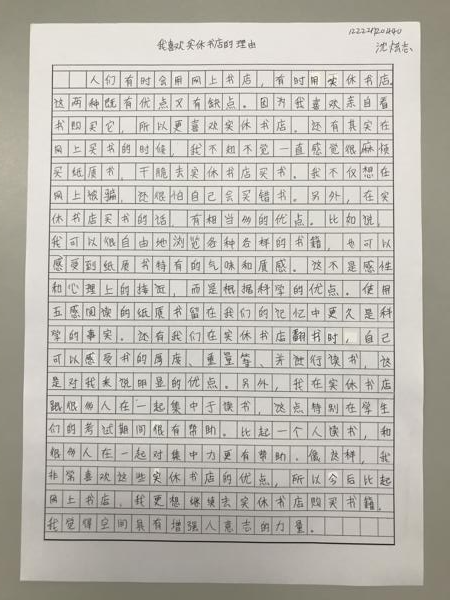 12222120440
沈信志
我喜欢实休书店的理由
人们有时会用网上书店，有时用实休书店。
这两种既有优点又有缺点。因为我喜欢亲自看
书即买它，所以更喜欢实休书店。还有其实在
网上买书的时候，我不知不觉一直感觉很麻烦
买纸质书，干脆去实休书店买书。我不仅想在
网上被骗，还很怕自己会买错书。另外，在实
休书店买书的话，有相当多的优点。比如说，
我可以很自由地浏览各种各样的书籍，也可以
感受到纸质书特有的气味和质感。这不是感性
和心理上的接近，而是根据科学的优点。使用
五感阅读的纸质书留在我们的记忆中更久是科
学的事实。还有我们在实休书店翻书时，自己
可以感受书的厚度、重量等，并进行读书，这
是对我来说明显的优点。另外，我在实休书店
跟很多人在一起集中于读书，这点特别在学生
们的考试期间很有帮助。比起一个人读书，和
很多人在一起对集中力更有帮助。像这样，我
非常喜欢这些实休书店的优点，所以今后比起
网上书店，我更想继续去实休书店购买书籍。
我觉得空间具有增强人意志的力量。